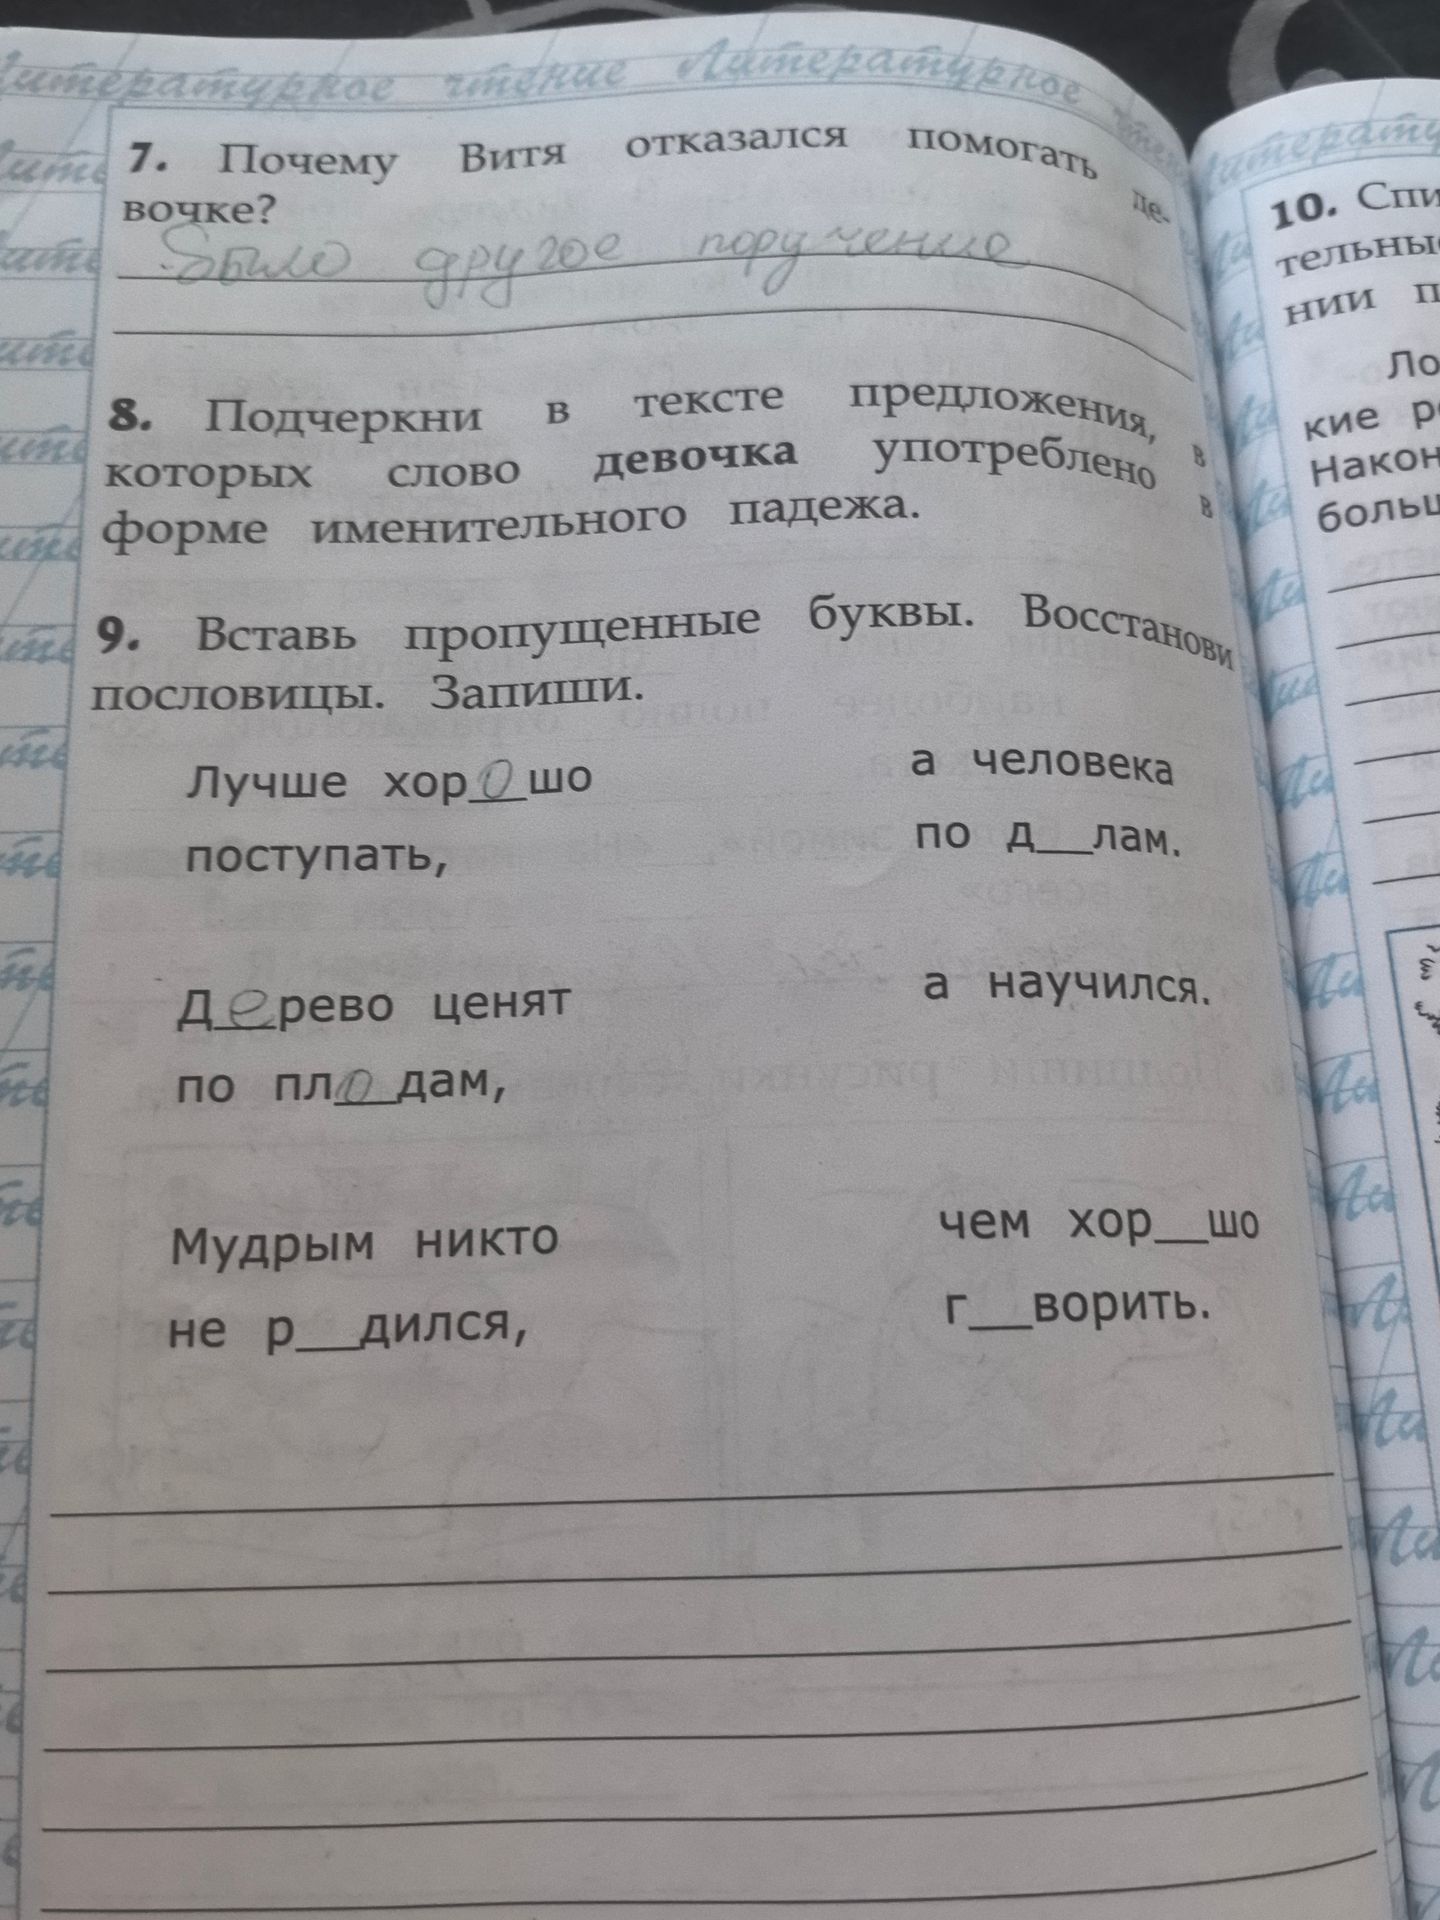 Литературное чтение Литературное
7. Почему Витя отказался помогать де-
вочке?
Было другое поручение
8. Подчеркни в тексте предложения, в
которых слово девочка употреблено в
форме именительного падежа.
9. Вставь пропущенные буквы. Восстанови
пословицы. Запиши.
Лучше хор_о_шо
поступать,
а человека
по д__лам.
Д_е_рево ценят
по пл_о_дам,
а научился.
Мудрым никто
не р__дился,
чем хор__шо
г__ворить.
10. Спи
тельны
нии п
Ло
кие р
Након
больш